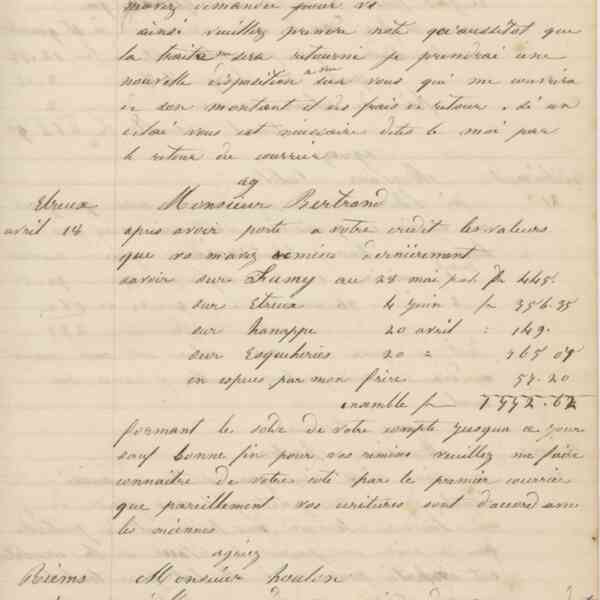 m'avez demandée pour vs
ainsi veuillez prendre note qu'aussitot que
la traite sera retourné je prendrai une
nouvelle disposition sur vous qui me couvrira
de son montant et des frais de retour. si un
délai vous est nécessaire dites le moi par
le retour du courrier
ag
Etreux Monsieur Bertrand
avril 18 apres avoir porté a votre credit les valeurs
que vs m'avez remises dernièrement
savoir sur Fumy au 28 mai fr 445.
sur Etreux 4 juin fr 356.35
sur hanappe 20 avril : 149.
sur Esqueheries 20 " 09
en espèces par mon frère 57.20
ensemble fr
formant le solde de votre compte jusqua ce jour
sauf bonne fin pour vos remises veuillez me faire
connaitre de votre coté par le premier courrier
que pareillement vos ecritures sont d'accord avec
les miennes
agréez
Reims Monsieur houlon